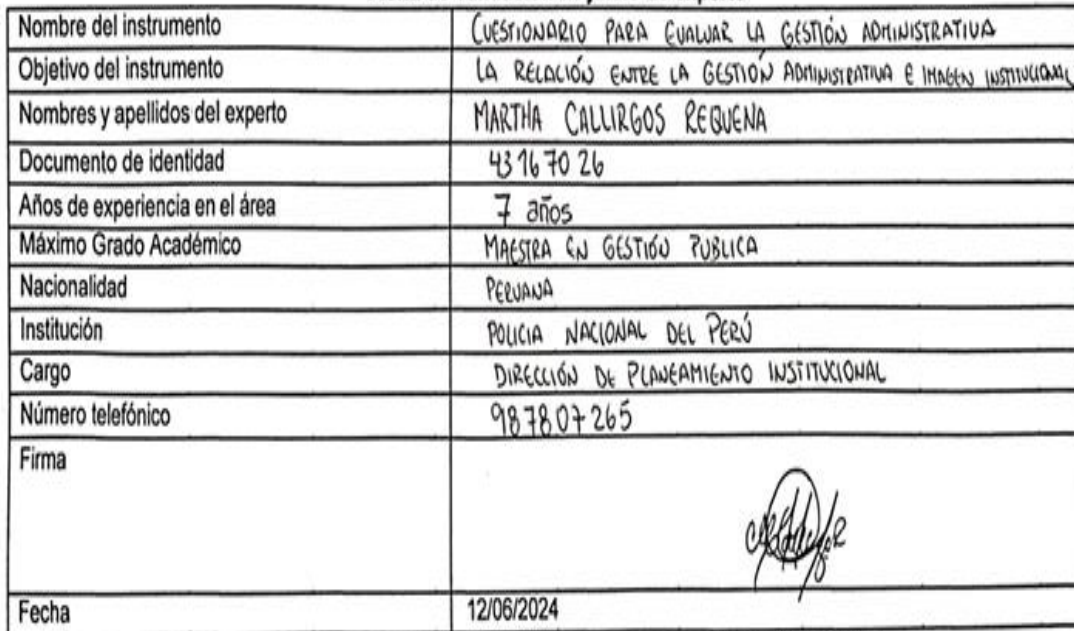 Nombre del instrumento CUESTIONARIO PARA EVALUAR LA GESTIÓN ADMINISTRATIVA
Objetivo del instrumento LA RELACIÓN ENTRE LA GESTIÓN ADMINISTRATIVA E IMAGEN INSTITUCIONAL
Nombres y apellidos del experto MARTHA CALLIRGOS REQUENA
Documento de identidad 43167026
Años de experiencia en el área 7 años
Máximo Grado Académico MAESTRA EN GESTIÓN PUBLICA
Nacionalidad PERUANA
Institución POLICIA NACIONAL DEL PERÚ
Cargo DIRECCIÓN DE PLANEAMIENTO INSTITUCIONAL
Número telefónico 987807265
Firma
Fecha 12/06/2024